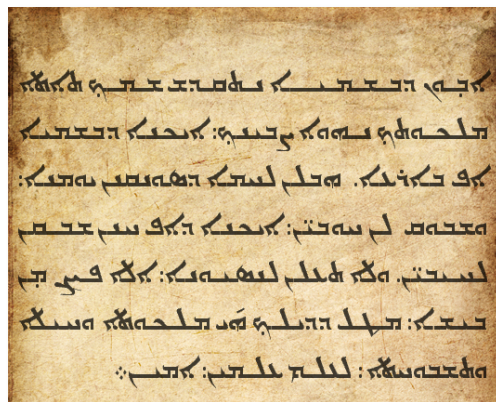 ܐܒܘܢ ܕܒܫܡܝܐ ܢܬܩܕܫ ܫܡܟ ܬܐܬܐ
ܡܠܟܘܬܟ ܢܗܘܐ ܨܒܝܢܟ: ܐܝܟܢܐ ܕܒܫܡܝܐ
ܐܦ ܒܐܪܥܐ. ܗܒܠܢ ܠܚܡܐ ܕܣܘܢܩܢܢ ܝܘܡܢܐ:
ܘܫܒܘܩ ܠܢ ܚܘܒܝ̈ܢ: ܐܝܟܢܐ ܕܐܦ ܚܢܢ ܫܒܩܢ
ܠܚܝܒܝ̈ܢ. ܘܠܐ ܬܥܠܢ ܠܢܣܝܘܢܐ: ܐܠܐ ܦܨܢ ܡ̣ܢ
ܒܝܫܐ: ܡܛܠ ܕܕܝܠܟ ܗ̇ܝ ܡܠܟܘܬܐ ܘܚܝܠܐ
ܘܬܫܒܘܚܬܐ: ܠܥܠܡ ܥܠܡܝܢ: ܐܡܝܢ܀